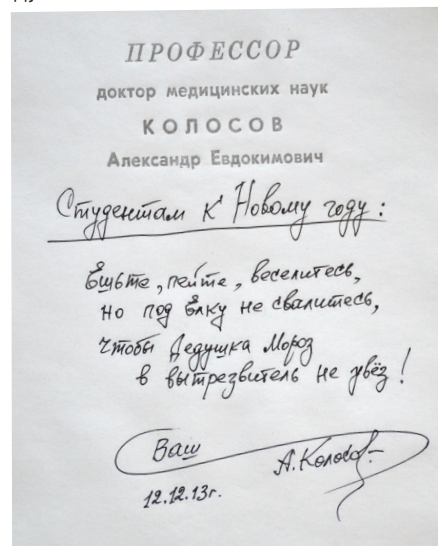 ПРОФЕССОР
доктор медицинских наук
КОЛОСОВ
Александр Евдокимович
Студентам к Новому году:
Ешьте, пейте, веселитесь,
но под ёлку не свалитесь,
чтобы Дедушка Мороз
в вытрезвитель не увёз!
Ваш А.Колосов
12.12.13г.